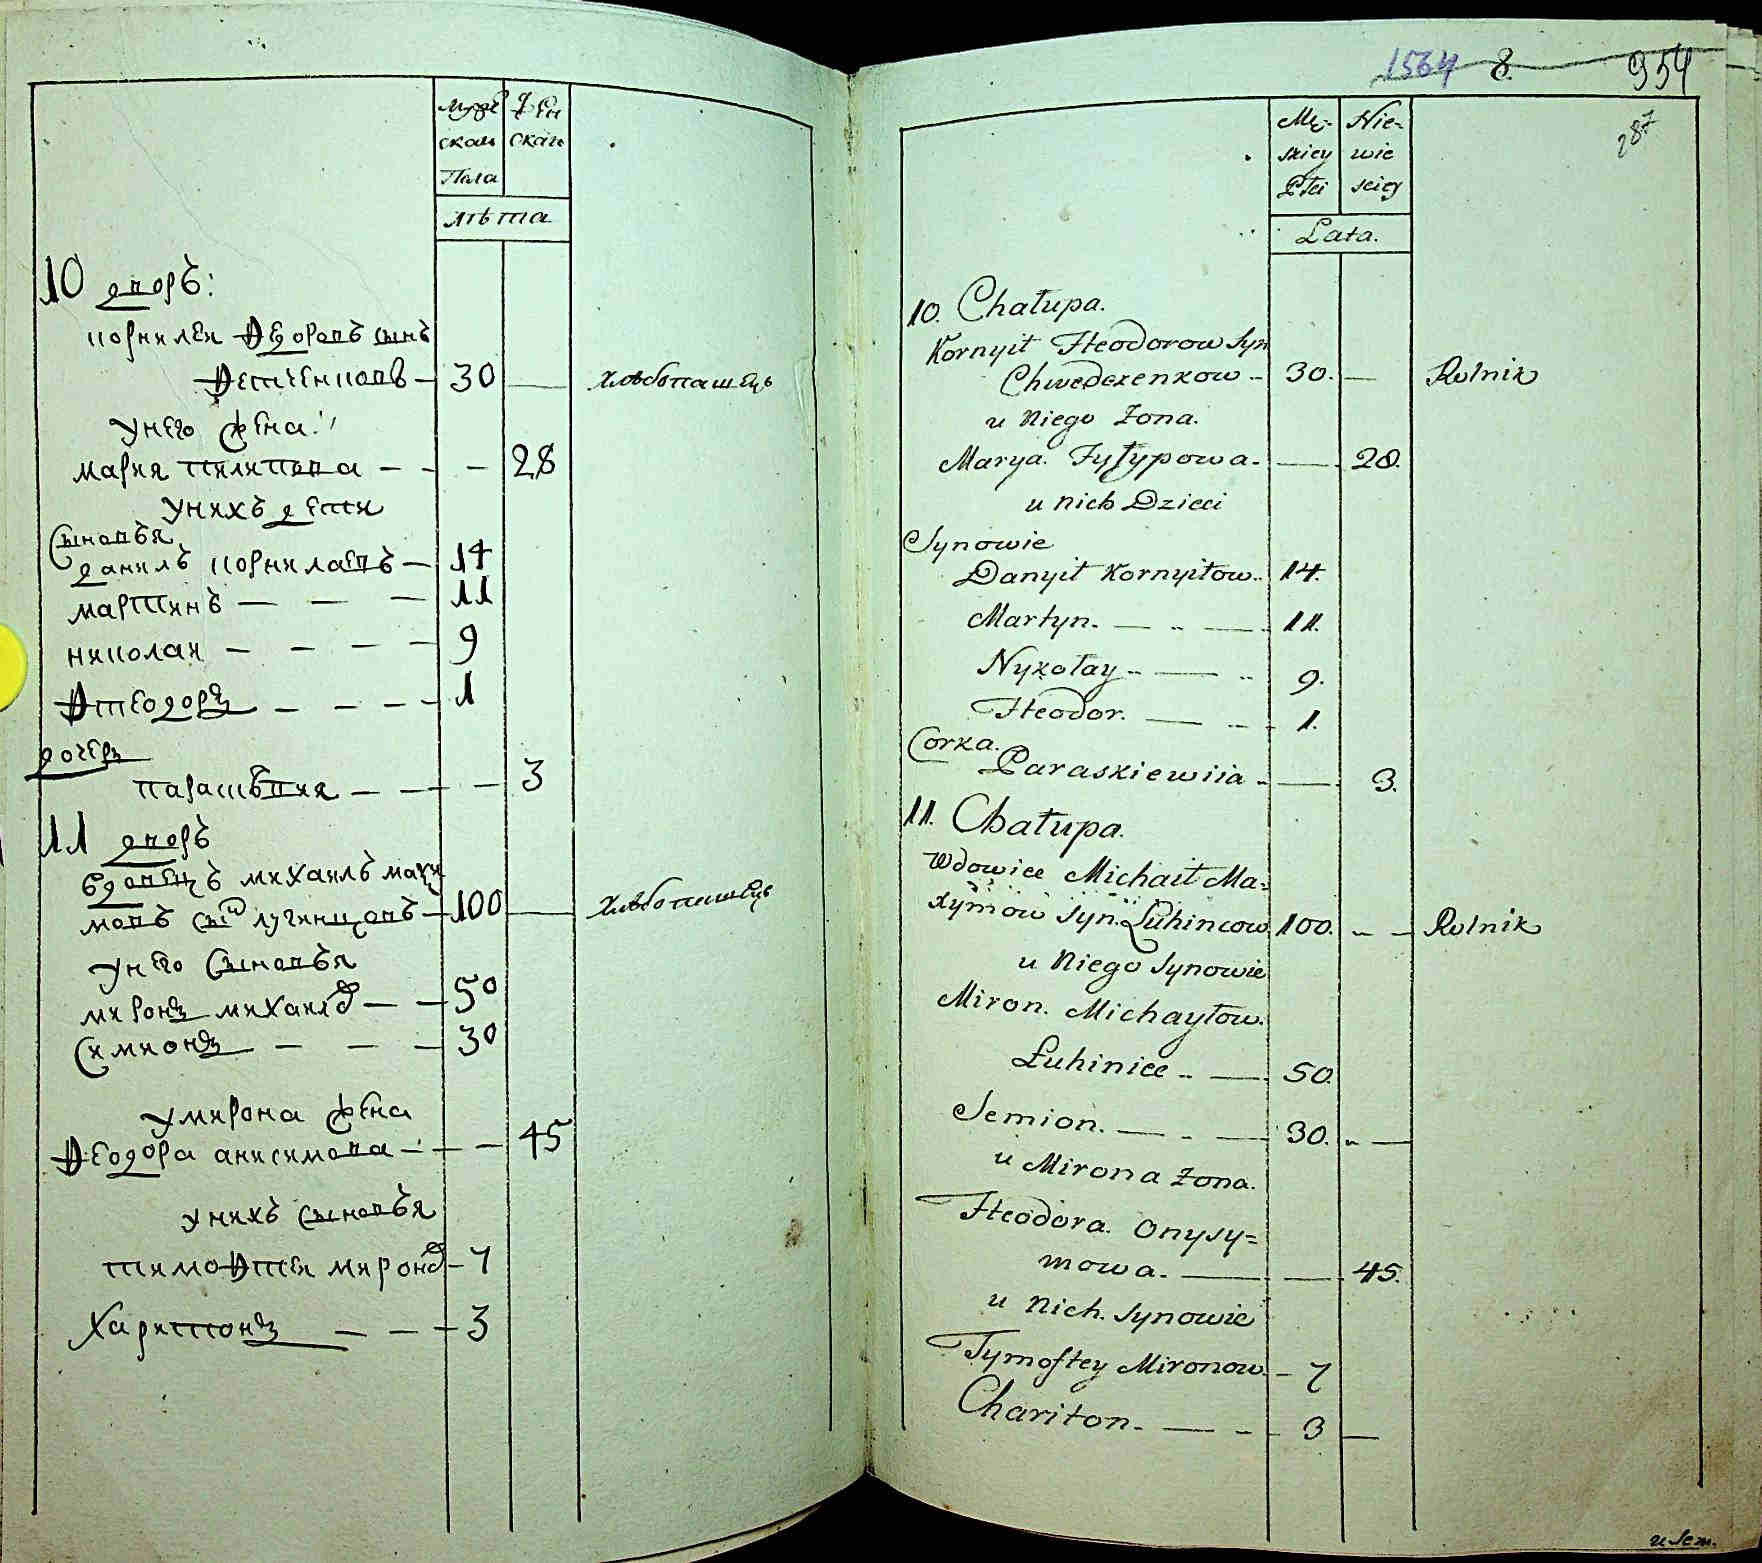 мужескаи
женскаи
Пола
лѣта
10 дворъ:
корнилеи Ѳедоровъ сынъ
Ѳетченковъ – 30 — хлѣбопашець
унего жена:
мария пилипова – – – 28
унихъ дети
Сыновъя
данилъ корнилавъ – 14
мартинъ — — — 11
николаи – – – – 9
Ѳтеодоръ – – – – 1
дочеръ
парасъвия – – – 3
11 дворъ
вдовецъ михаилъ макси
мовъ сынъ лугинцовъ – 100 — хлѣбопашець
унего Сыновъя
миронъ михаило — — 50
Симионъ — — — 30
умирона жена
Ѳеодора анисимова – – – 45
унихъ Сыновъя
тимоѲтеи мироно – 7
Харитонъ — — – 3
1564 8. 954
287
Mę- skiey Płci
Nie- wie sciey
Lata.
10. Chałupa.
Kornyił Fteodorow Syn
Chwedczenkow – 30. — Rolnik
u Niego Zona.
Marya. Fyłypowa. — 28.
u nich Dzieci
Synowie
Danyił Kornyiłow.. 14.
Martyn. — .. — 11.
Nykołay .. — .. 9.
Fteodor. — .. 1.
Corka.
Paraskiewiia – — 3.
11. Chałupa.
Wdowiec Michaił Ma=
xymow Syn. Łuhincow 100. – — Rolnik
u Niego Synowie
Miron. Michayłow.
Łuhiniec .. — 50.
Semion. — .. — 30. .. —
u Mirona Zona.
Fteodora. Onysy=
mowa. — — 45.
u Nich. Synowie
Tymoftey Mironow. – 7
Chariton. — – 3 —
u Sem.